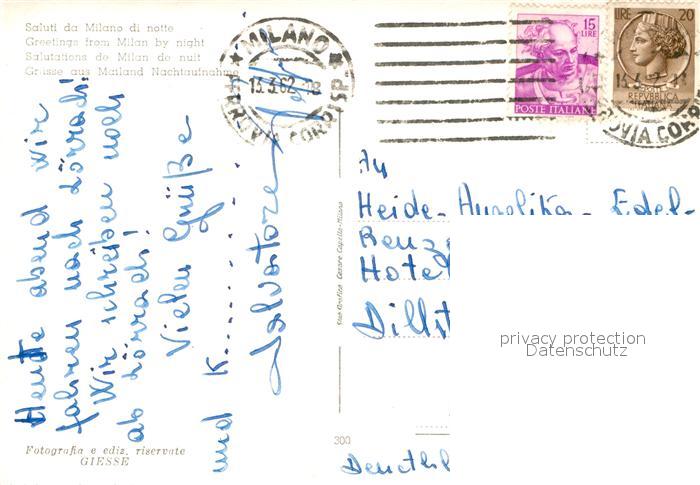 Saluti da Milano di notte
Greetings from Milan by night
Salutations de Milan de nuit
Grüsse aus Mailand Nachtaufnahme
MILANO
13.3.62
FERROVIA CORRISP.
15
LIRE
POSTE ITALIANE
LIRE 20
REPVBBLICA
OVIA CORR
Heute abend wir
fahren nach Lörrach!
Wir schreiben noch
ab Lörrach!
Vielen Grüße
und K........
Salvatore
An
Heide-Aurelika-Edel-
Renz
Hotel
Dillst
Deutchl
Stab Grafico Cesare Capello-Milano
300
Fotografia e ediz. riservate
GIESSE
privacy protection
Datenschutz